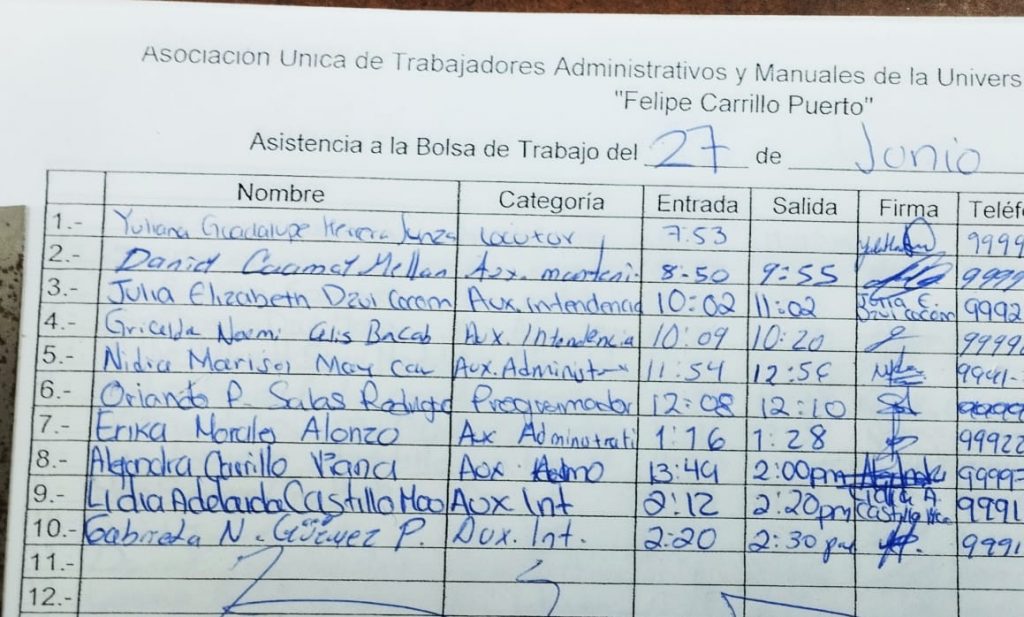 Asociación Única de Trabajadores Administrativos y Manuales de la Univers
"Felipe Carrillo Puerto"
Asistencia a la Bolsa de Trabajo del 27 de Junio
Nombre Categoría Entrada Salida Firma Teléfo
1.- Yuliana Guadalupe Herrera Locutor 7:53 9999
2.- Daniel Caamal Aux. 8:50 9:55 9999
3.- Julia Elizabeth Dzul Cocom Aux. Intendencia 10:02 11:02 Julia E. Dzul Cocom 9992
4.- Gricelda Noemi Celis Bacab Aux. Intendencia 10:09 10:20 9999
5.- Nidia Marisol May Cau Aux. Administra 11:54 12:56 9941-
6.- Orlando P. Salas Programador 12:08 12:10
7.- Erika Morales Alonzo Aux Administrati 1:16 1:28 99922
8.- Alejandra Carrillo Viana Aux. Admo 13:49 2:00pm 9999
9.- Lidia Adelaida Castillo Moo Aux Int 2:12 2:20pm Lidia A. Castillo 9991
10.- Gabriela N. P. Aux. Int. 2:20 2:30 pm 9991
11.-
12.-